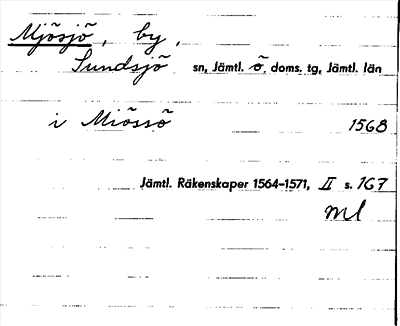 Mjösjö, by,
Sundsjö sn, Jämtl. ö. doms. tg, Jämtl. län
i Miössö 1568
Jämtl. Räkenskaper 1564-1571, II s. 167
ml